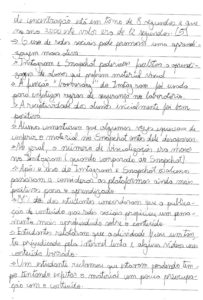 de concentração está em torno de 8 segundos, e que
no ano 2000 este valor era de 12 segundos (5)
→ O uso de redes sociais pode promover uma aprendi-
zagem mais ativa
→ Instagram e Snapchat poderiam facilitar a aprendi-
zagem de alunos que preferem material visual
→ A função "borrada" do Instagram foi usada
para enfatizar regras de segurança no laboratório
→ A receptividade dos alunos inicialmente foi bem
positiva
→ Alunos comentaram que algumas vezes esqueciam de
conferir o material no Snapchat antes dele desaparecer
→ No geral, o número de visualizações era maior
no Instagram (quando comparado ao Snapchat)
→ Após o uso do Instagram e Snapchat os alunos
passaram a considerar as plataformas ainda mais
positivas para o aprendizado
→ dos estudantes concordaram que a publica-
ção de conteúdo nas redes sociais propiciou um pensa-
mento mais aprofundado sobre o conteúdo
→ Estudantes relataram que a atividade ficou um tan-
to prejudicada pela internet lenta e alguns vídeos com
conteúdo borrado
→ Um estudante reclamou que estavam perdendo tem-
po tentando explicar o material um pouco preocupa-
ção com o conteúdo.